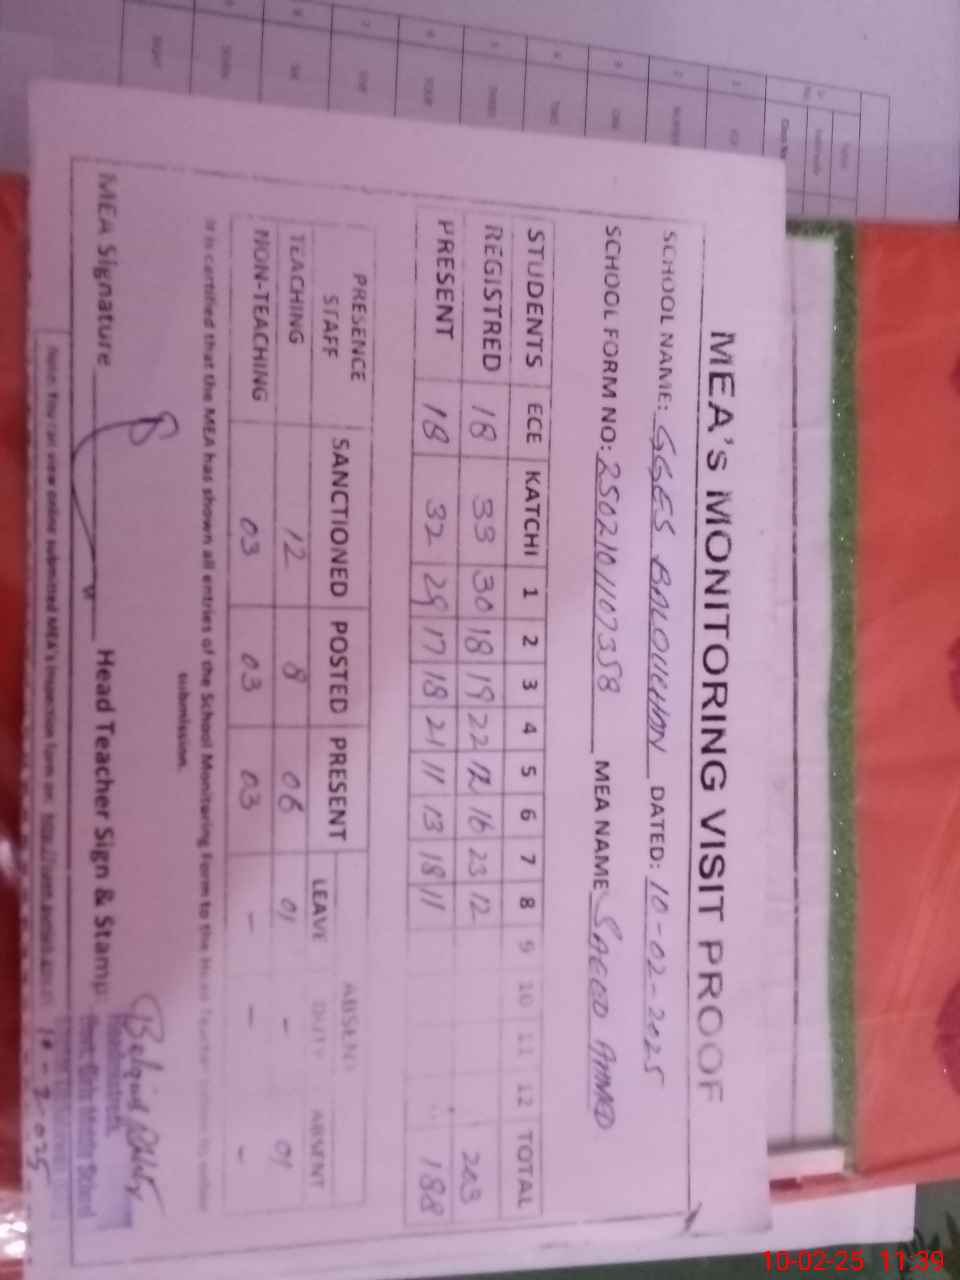 MEA's MONITORING VISIT PROOF
SCHOOL NAME: GGES BALOUCHAN DATED: 10-02-2025
SCHOOL FORM NO: 2502101107358 MEA NAME SAEED AHMED
STUDENTS ECE KATCHI 1 2 3 4 5 6 7 8 9 10 11 12 TOTAL
REGISTRED 18 33 30 18 19 22 12 16 23 12 203
PRESENT 18 32 29 17 18 21 11 13 18 11 188
PRESENCE STAFF SANCTIONED POSTED PRESENT ABSENT
LEAVE DUTY ABSENT
TEACHING 12 8 06 01 - 01
NON-TEACHING 03 03 03 - - -
It is certified that the MEA has shown all entries of the School Monitoring Form to the Head Teacher before its online
submission.
MEA Signature Head Teacher Sign & Stamp:
Note: You can view online submitted MEA's inspection form on:
10-02-25 11:39